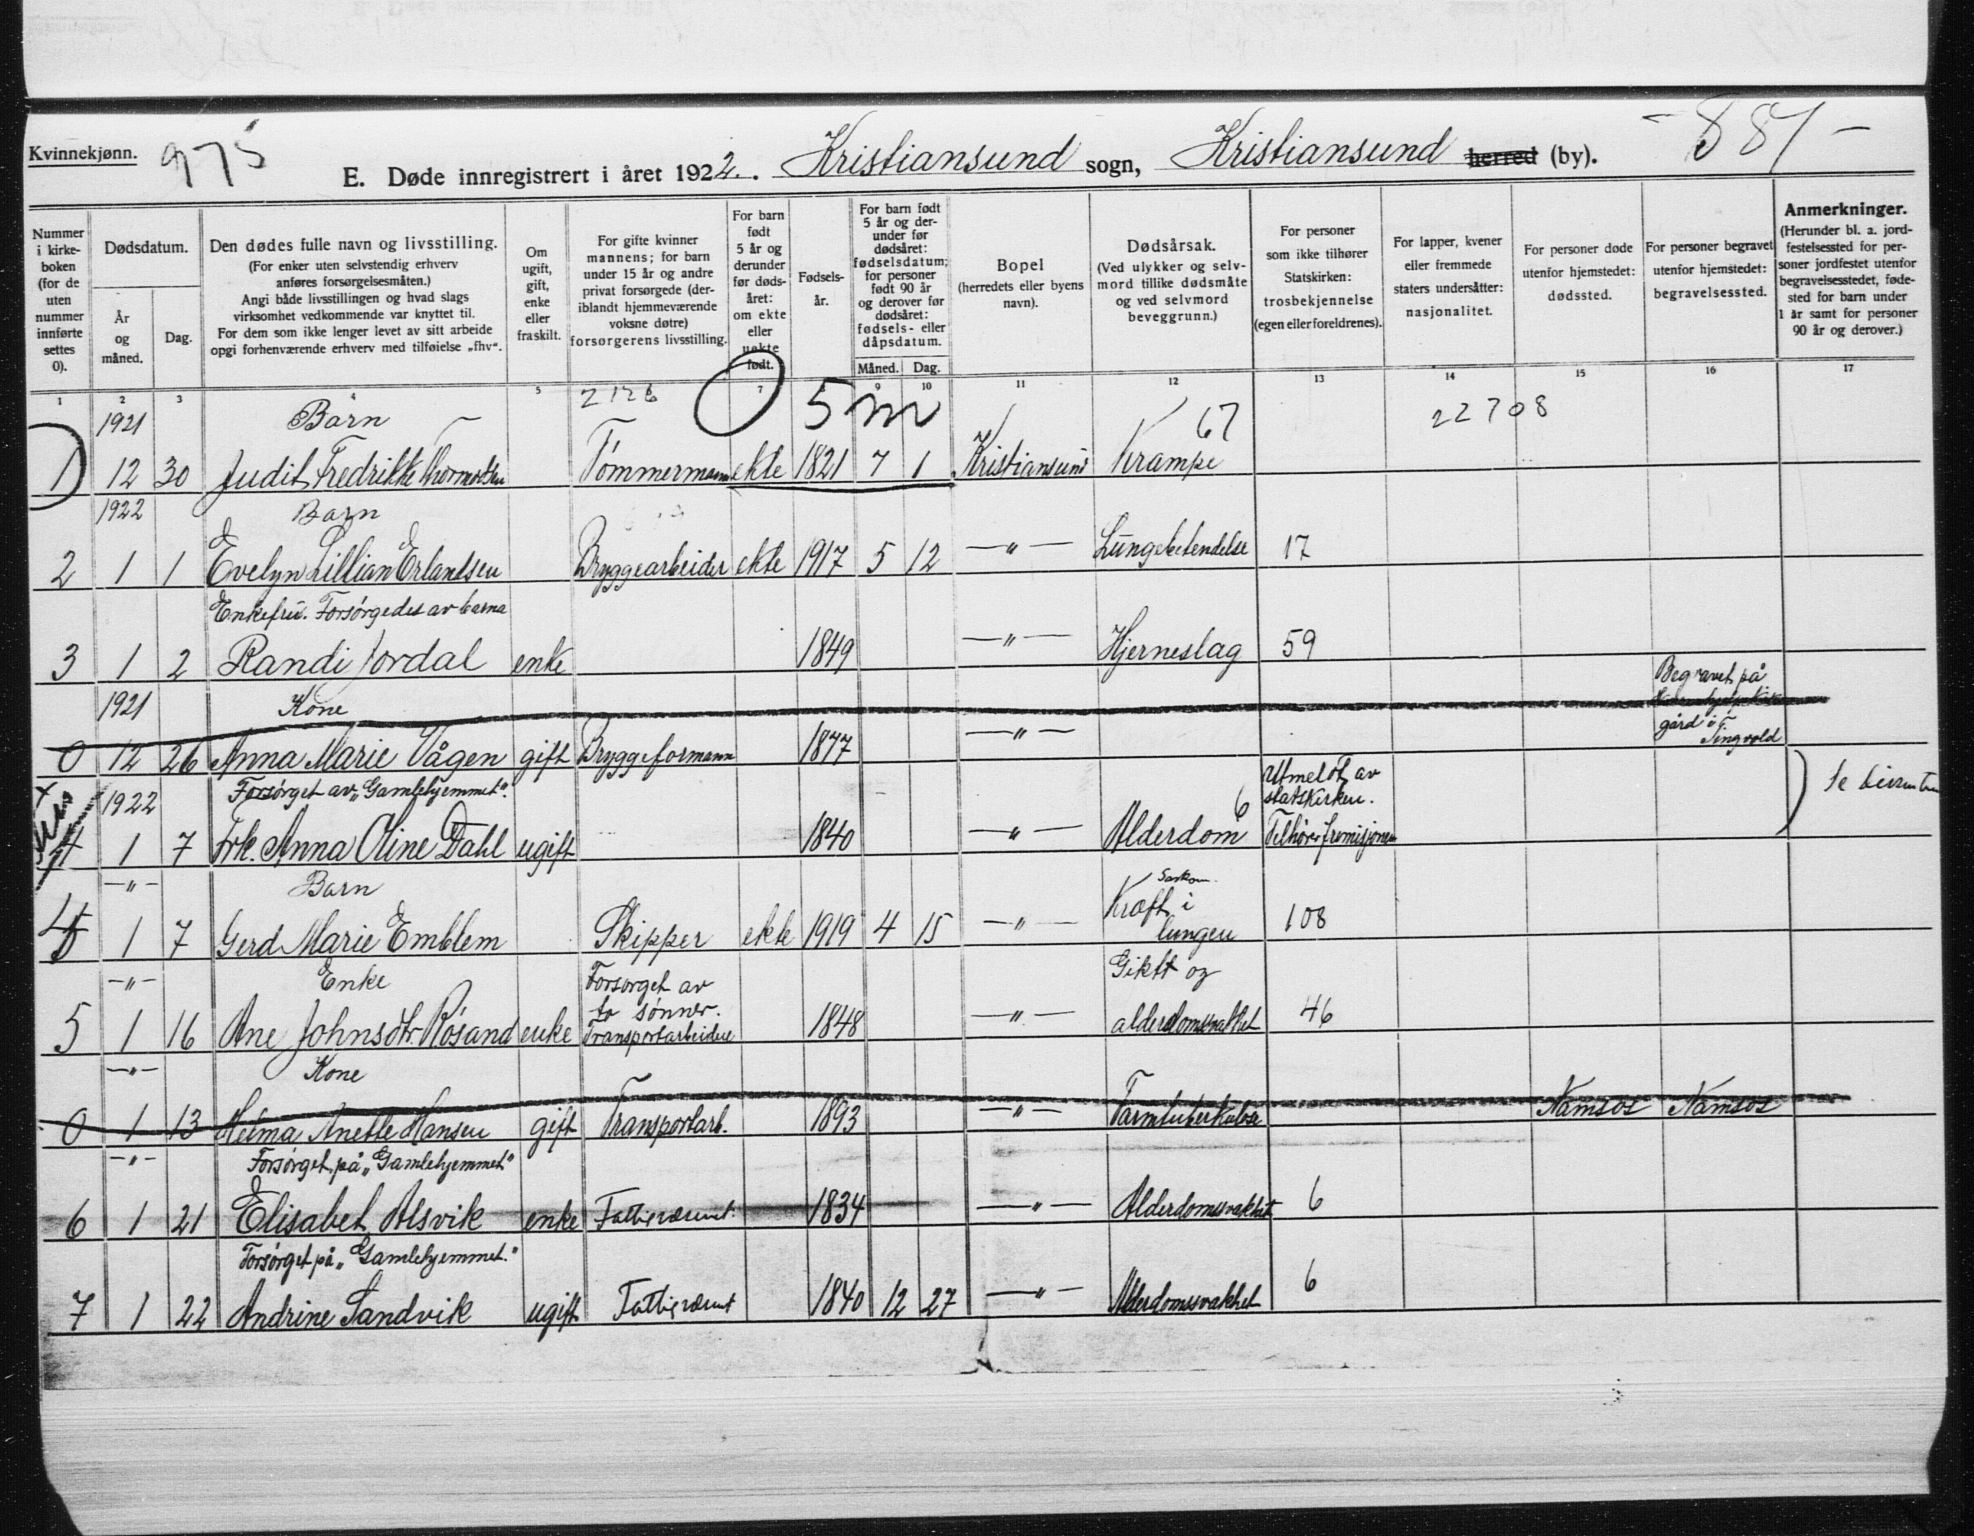 Kvinnekjønn.
975
- 887 -
E. Døde innregistrert i året 1922. Kristiansund sogn, Kristiansund herred (by).
Nummer i kirkeboken (for de uten nummer innførte settes 0).
Dødsdatum.
År og måned.
Dag.
Den dødes fulle navn og livsstilling.
(For enker uten selvstendig erhverv anføres forsørgelsesmåten.)
Angi både livsstillingen og hvad slags virksomhet vedkommende var knyttet til.
For dem som ikke lenger levet av sitt arbeide opgi forhenværende erhverv med tilføielse „fhv“.
Om ugift, gift, enke eller fraskilt.
For gifte kvinner mannens; for barn under 15 år og andre privat forsørgede (deriblandt hjemmeværende voksne døtre) forsørgerens livsstilling.
For barn født 5 år og derunder før dødsåret: om ekte eller uekte født.
Fødselsår.
For barn født 5 år og derunder før dødsåret: fødselsdatum; for personer født 90 år og derover før dødsåret: fødsels- eller dåpsdatum.
Måned. Dag.
Bopel
(herredets eller byens navn).
Dødsårsak.
(Ved ulykker og selvmord tillike dødsmåte og ved selvmord beveggrunn.)
For personer som ikke tilhører Statskirken: trosbekjennelse (egen eller foreldrenes).
For lapper, kvener eller fremmede staters undersåtter: nasjonalitet.
For personer døde utenfor hjemstedet: dødssted.
For personer begravet utenfor hjemstedet: begravelsessted.
Anmerkninger.
(Herunder bl. a. jordfestelsessted for personer jordfestet utenfor begravelsesstedet, fødested for barn under 1 år samt for personer 90 år og derover.)
1 2 3 4 5 7 9 10 11 12 13 14 15 16 17
2126
5 m
67
22708
1921 Barn
1 12 30 Judit Fredrikke Tømmermann ekte 1821 7 1 Kristiansund Krampe
1922 Barn
2 1 1 Evelyn Lillian Erlandsen Bryggearbeider ekte 1917 5 12 —„— Lungebetendelse 17
Enkefru. Forsørgedes av barna
3 1 2 Randi Jordal enke 1849 —„— Hjerneslag 59
1921 Kone
Begravet på
gård i Tingvold
0 12 26 Anna Marie Vågen gift Bryggeformann 1877 —„—
1922 Forsørget av „Gamlehjemmet“.
Utmeldt av statskirken.
4 1 7 Frk. Anna Oline Dahl ugift 1840 —„— Alderdom 6 Tilhører frimisjonen
—„— Barn
4 5 1 7 Gerd Marie Emblem Skipper ekte 1919 4 15 —„— Kræft i lungen 108
—„— Enke Forsørget av to sønner. Gikt og
5 1 16 Ane Johnsdtr. Rösand enke Transportarbeidere 1848 —„— alderdomssvakhet 46
—„— Kone
0 1 13 Helma Anette Hansen gift Transportarb. 1893 —„— Tarmtuberkulose Namsos Namsos
—„— Forsørget på „Gamlehjemmet“
6 1 21 Elisabet Alsvik enke Fattigvesenet. 1834 —„— Alderdomssvakhet 6
Forsørget på „Gamlehjemmet.“
7 1 22 Andrine Sandvik ugift 1840 12 27 —„— Alderdomssvakhet 6